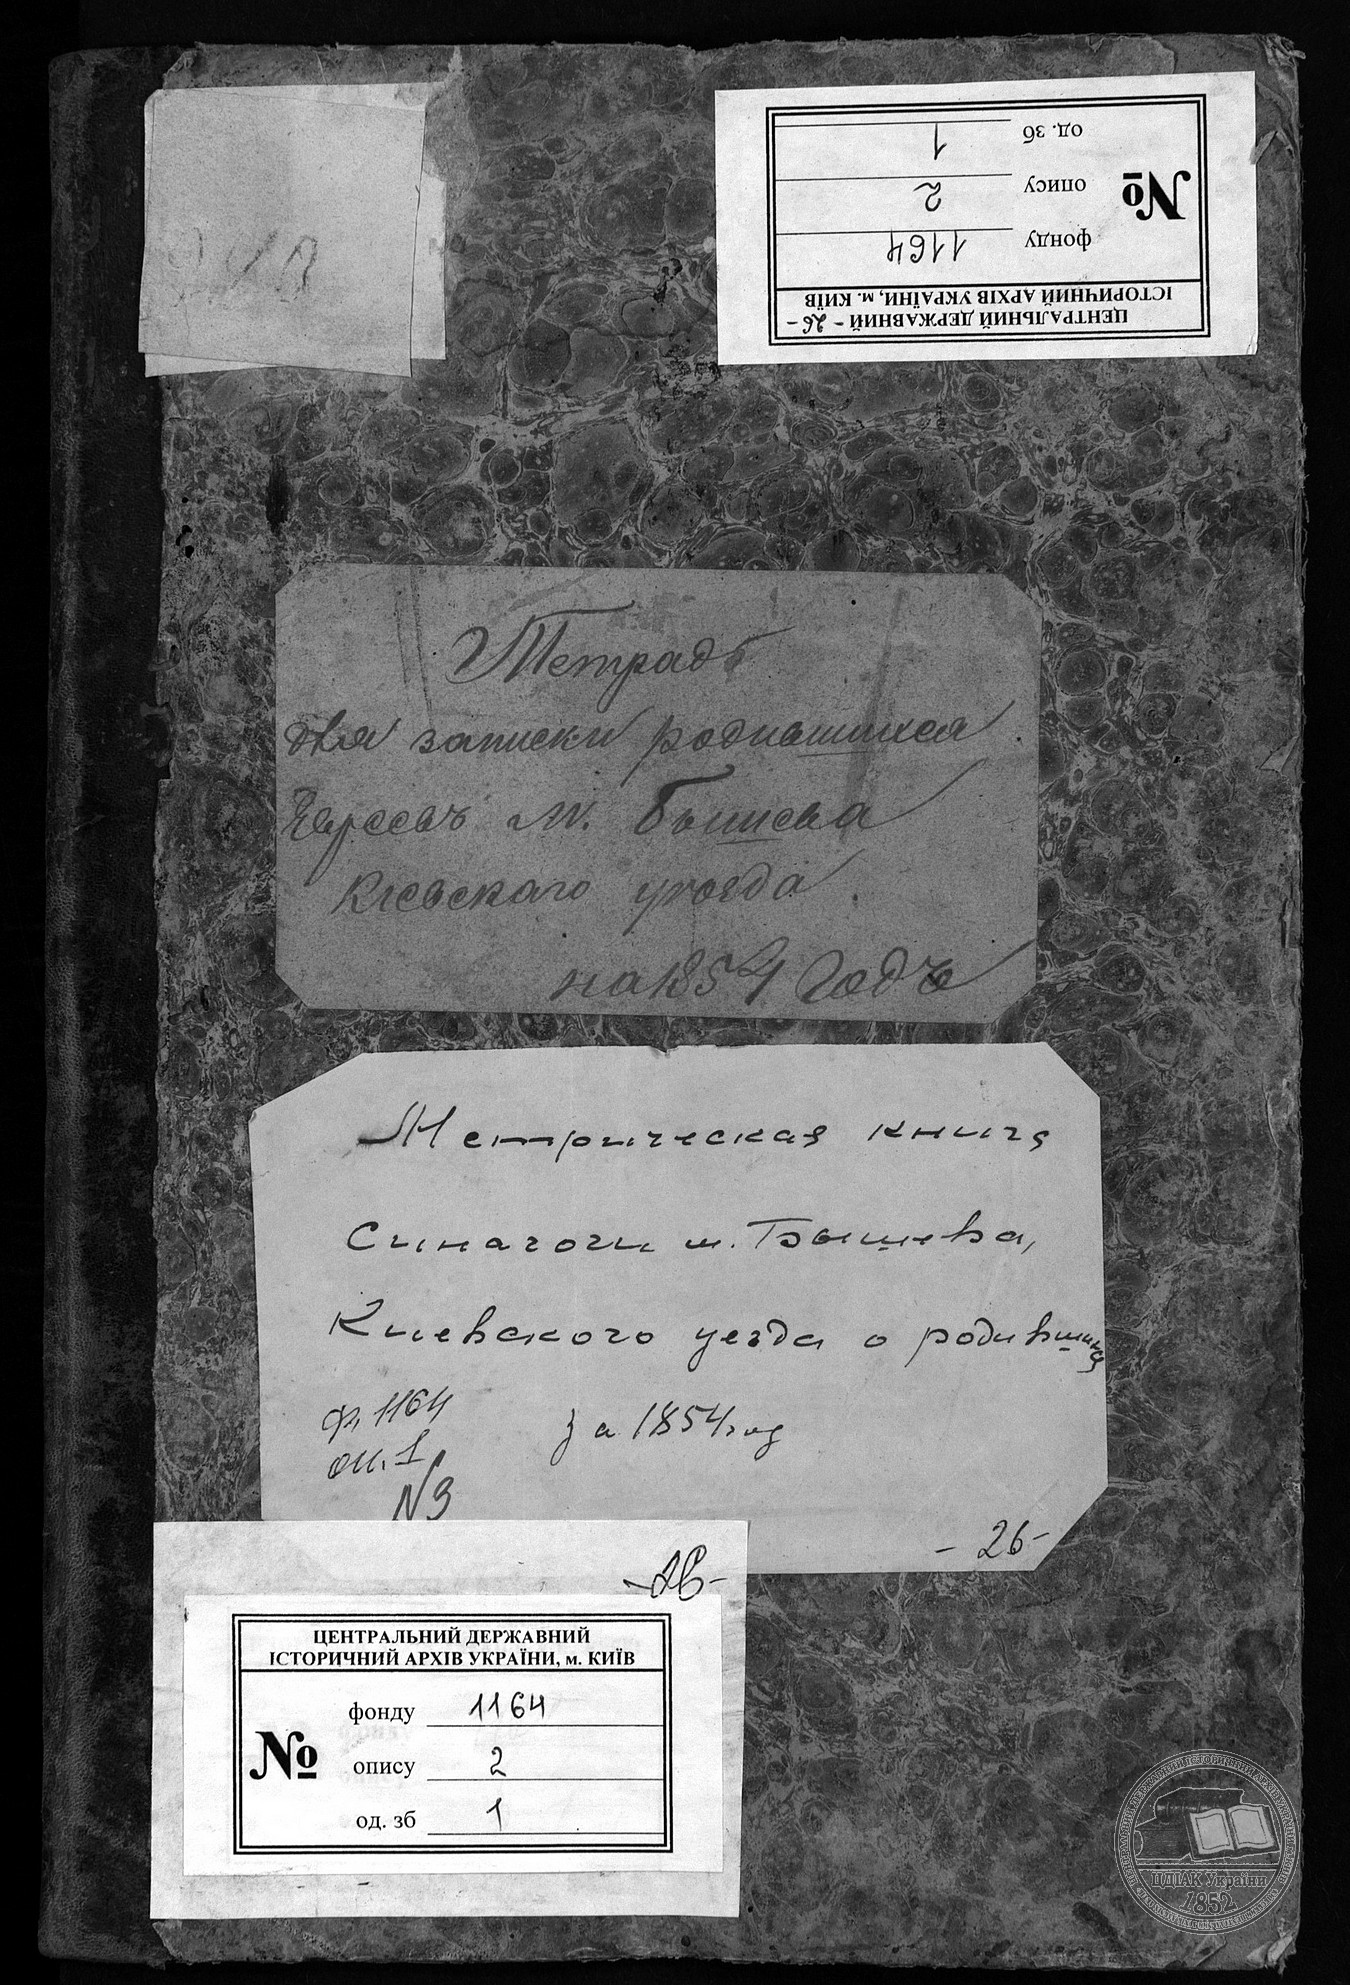 од. зб 1
№ опису 2
фонду 1164
ЦЕНТРАЛЬНИЙ ДЕРЖАВНИЙ -26-
ІСТОРИЧНИЙ АРХІВ УКРАЇНИ, м. КИЇВ
Тетрадь
для записки родившихся
Евреевъ м. Бышева
Кіевскаго уѣзда
на 1854 годъ
Метрическая книга
Синагоги м. Бышева,
Киевского уезда о родившихся
ф. 1164
за 1854 год
оп. 1
№3
-26-
-26-
ЦЕНТРАЛЬНИЙ ДЕРЖАВНИЙ
ІСТОРИЧНИЙ АРХІВ УКРАЇНИ, м. КИЇВ
фонду 1164
№ опису 2
од. зб 1
ЦДІАК України
1852